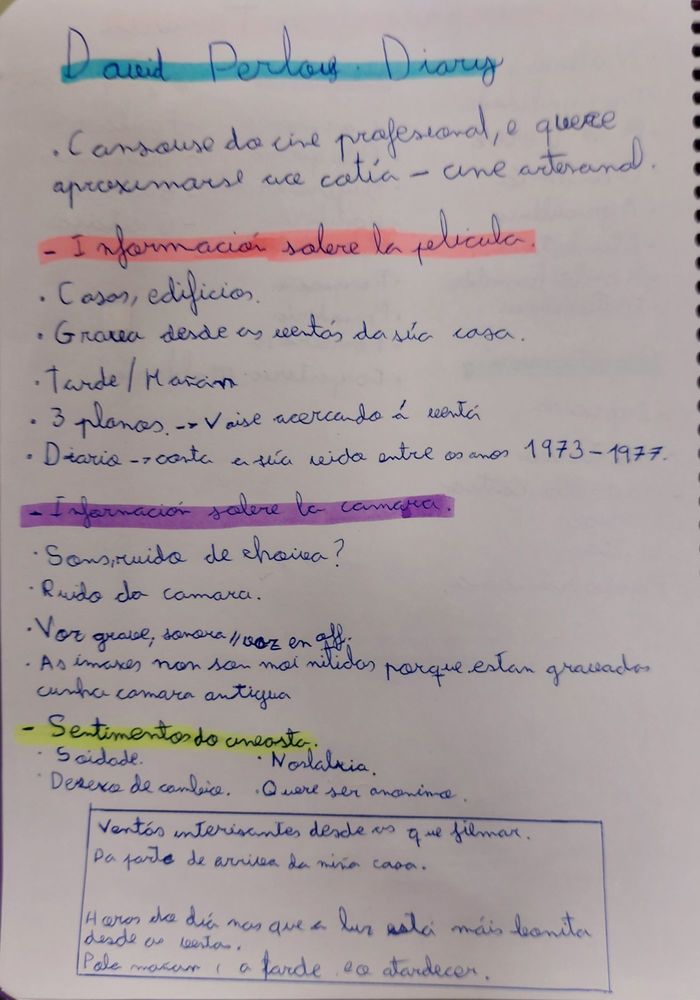 David Perlov. Diary
. Cansouse do cine profesional, e quere
aproximarse ao cotía – cine artesanal.
- Información sobre la pelicula.
· Casas, edificios.
· Gravea desde as ventás da súa casa.
· Tarde / Mañán
· 3 planos. -> Vaise acercando á ventá
· Diario -> conta a súa vida entre os anos 1973 – 1977.
- Información sobre la camara.
· Sons, ruido de choiva?
· Ruido da camara.
· Voz grave, sonora // voz en off.
· As imaxes non son moi nitidas porque estan gravadas
cunha camara antigua
- Sentimentos do cineasta.
· Soidade. · Nostalxia.
· Desexo de cambio. · Quere ser anonimo.
Ventás interisantes desde as que filmar.
Da parte de arriva da miña casa.
Horas do día nas que a luz está máis bonita
desde as ventas.
Pola mañan, a tarde, ao atardecer.